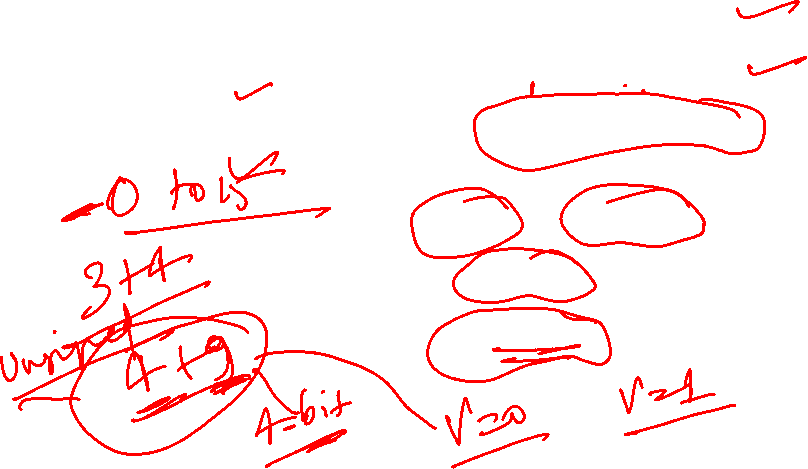 0 to 15
3+4
unsigned
4+9
4=bit
V=0
V=1